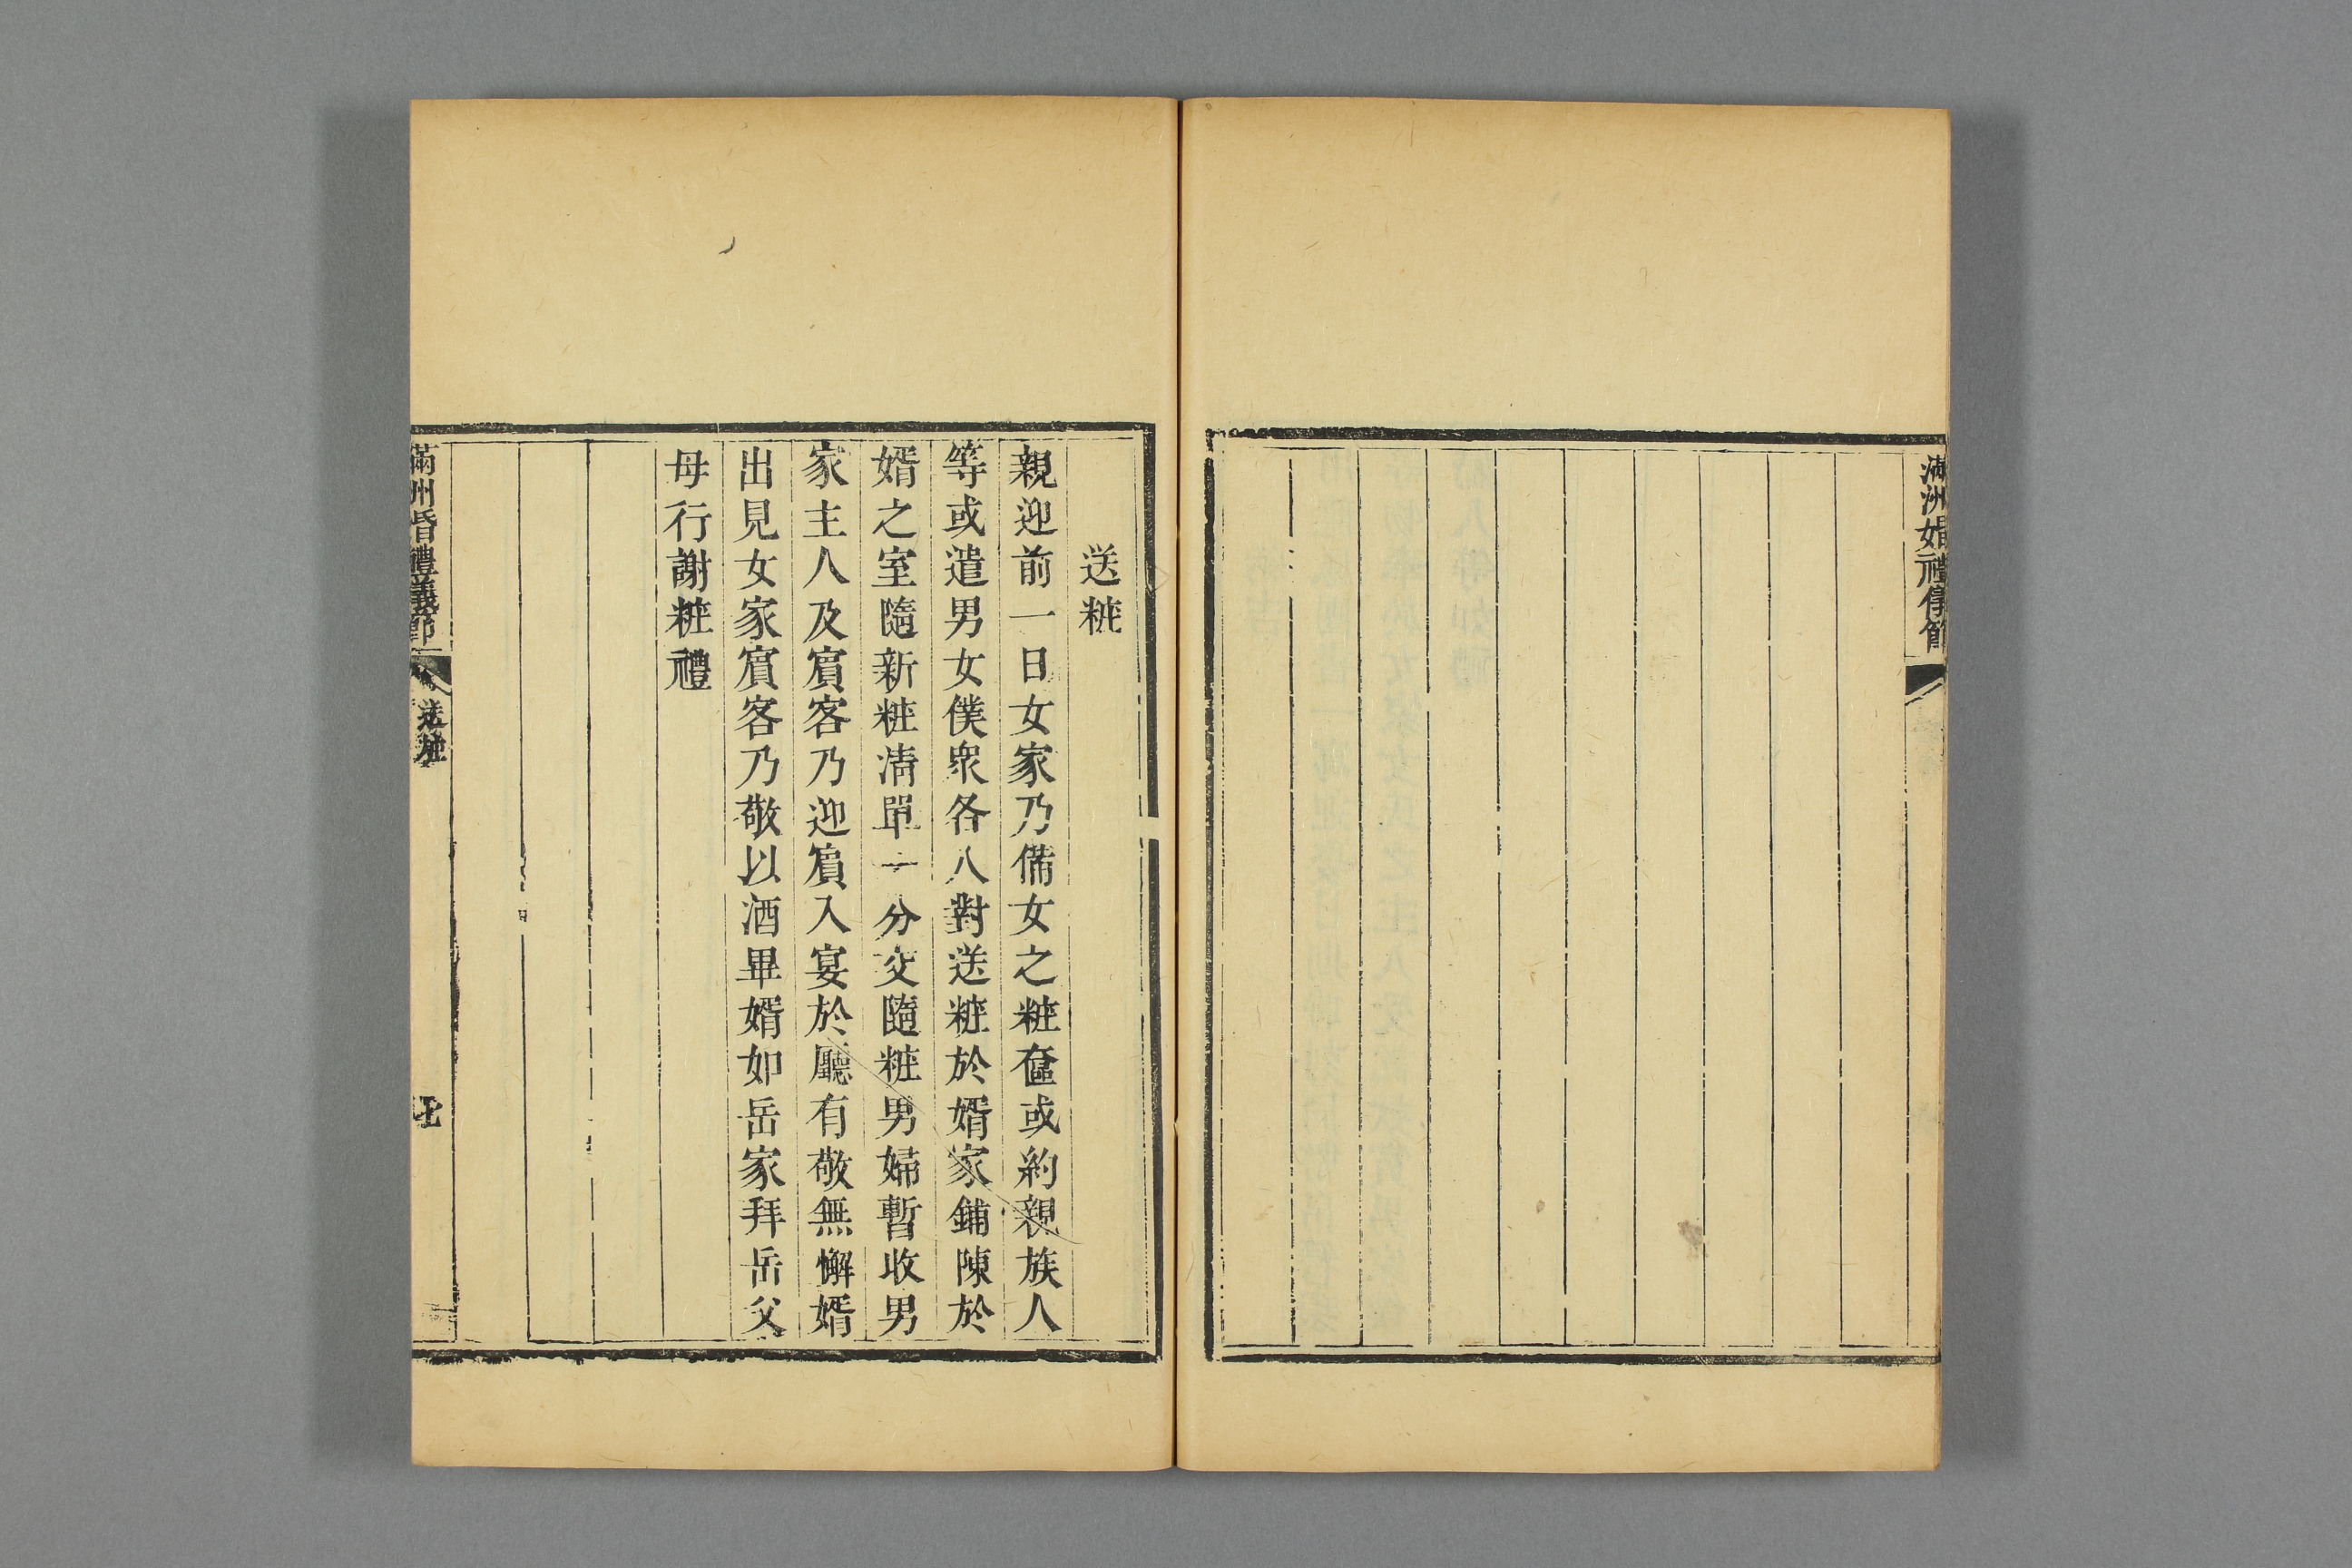 滿洲婚禮儀節
送粧
親迎前一日女家乃備女之粧奩或約親族人
等或遣男女僕衆各八對送粧於婿家鋪陳於
婿之室隨新粧清單一分交隨粧男婦暫收男
家主人及賔客乃迎賔入宴於廳有敬無懈婿
出見女家賔客乃敬以酒畢婿如岳家拜岳父
母行謝粧禮
滿州昏禮義節
送粧
七